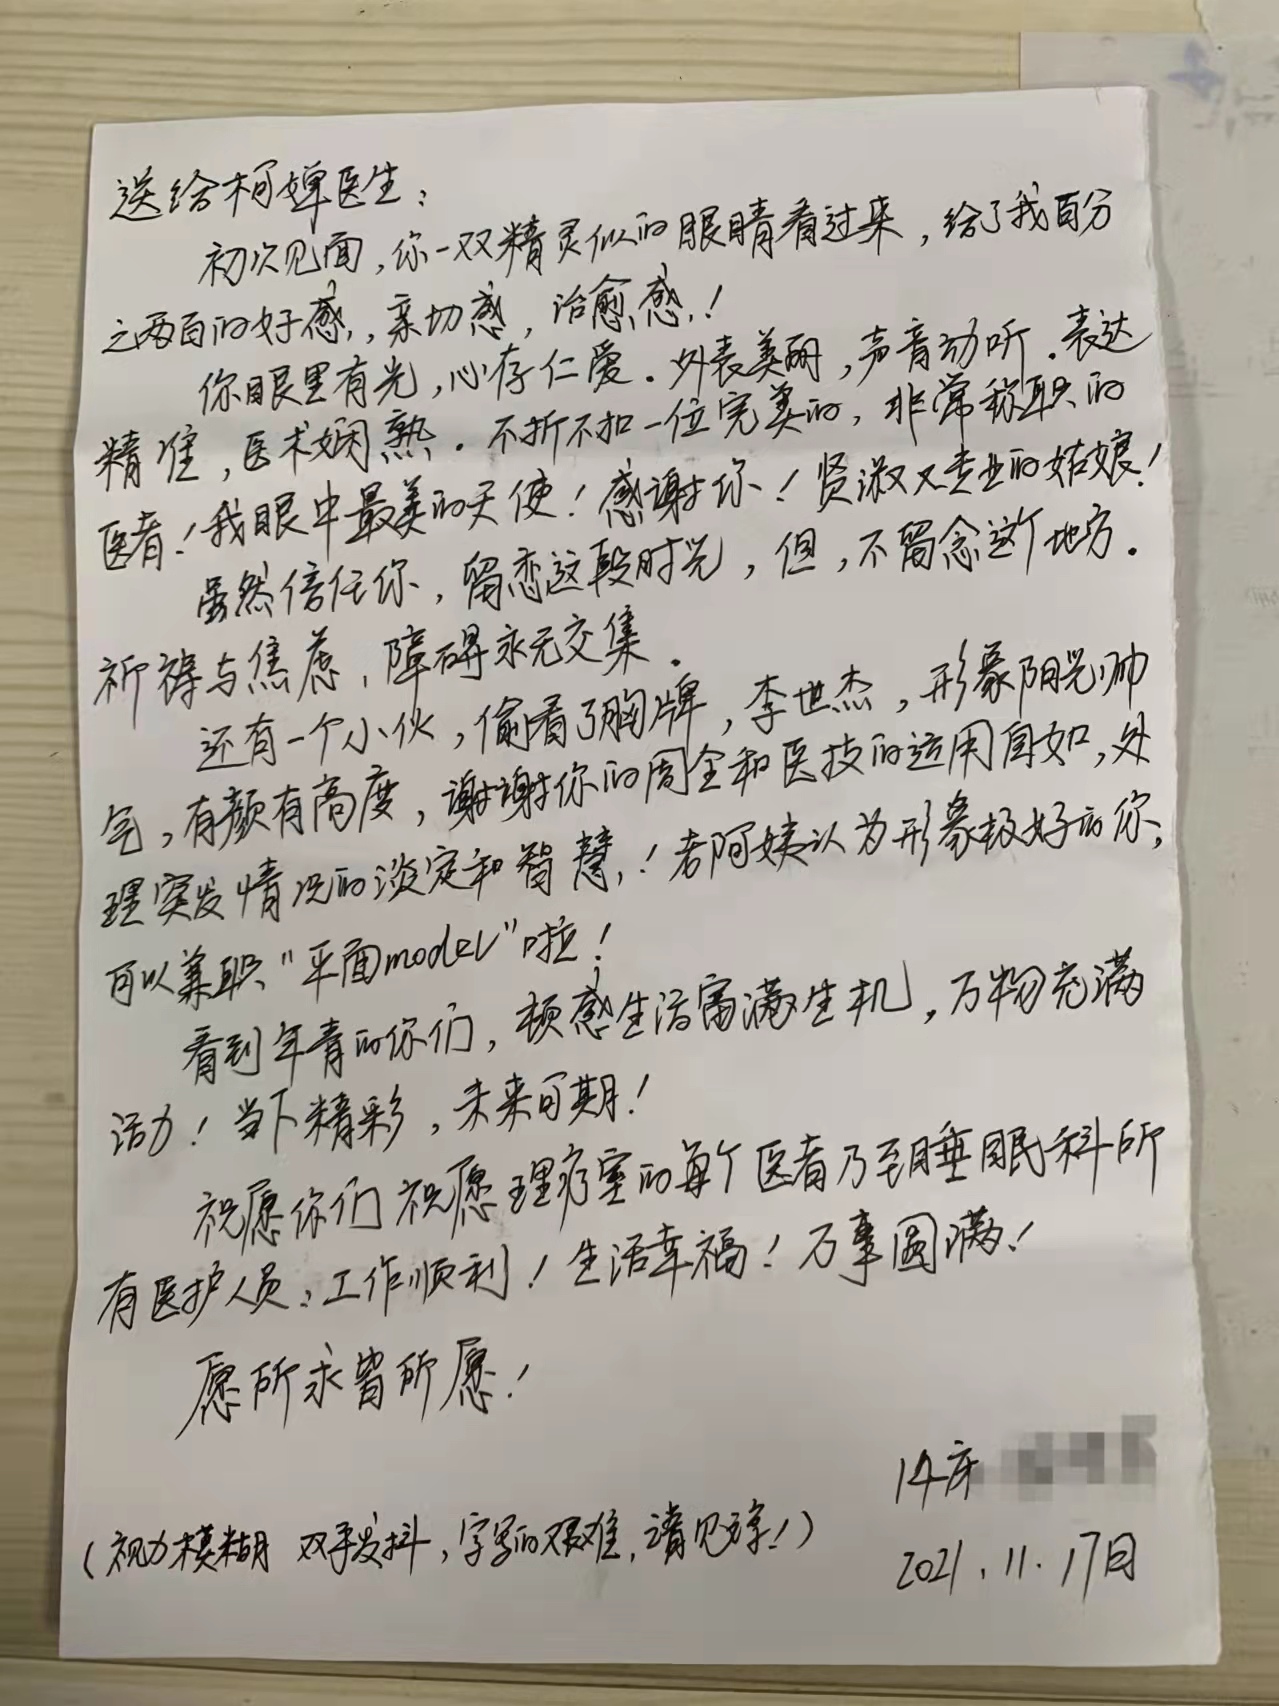 送给柯婵医生：
初次见面，你一双精灵似的眼睛看过来，给了我百分
之两百的好感，亲切感，治愈感！
你眼里有光，心存仁爱．外表美丽，声音动听．表达
精准，医术娴熟．不折不扣一位完美的，非常称职的
医者！我眼中最美的天使！感谢你！贤淑又专业的姑娘！
虽然信任你，留恋这段时光，但，不留念这个地方．
祈祷与焦虑，障碍永无交集．
还有一个小伙，偷看了胸牌，李世杰，形象阳光帅
气，有颜有高度，谢谢你的周全和医技的运用自如，处
理突发情况的淡定和智慧！老阿姨认为形象极好的你，
可以兼职“平面model”啦！
看到年青的你们，顿感生活富满生机，万物充满
活力！当下精彩，未来可期！
祝愿你们 祝愿理疗室的每个医者乃至睡眠科所
有医护人员：工作顺利！生活幸福！万事圆满！
愿所求皆所愿！
14床
（视力模糊 双手发抖，字写的艰难，请见谅！）
2021.11.17日